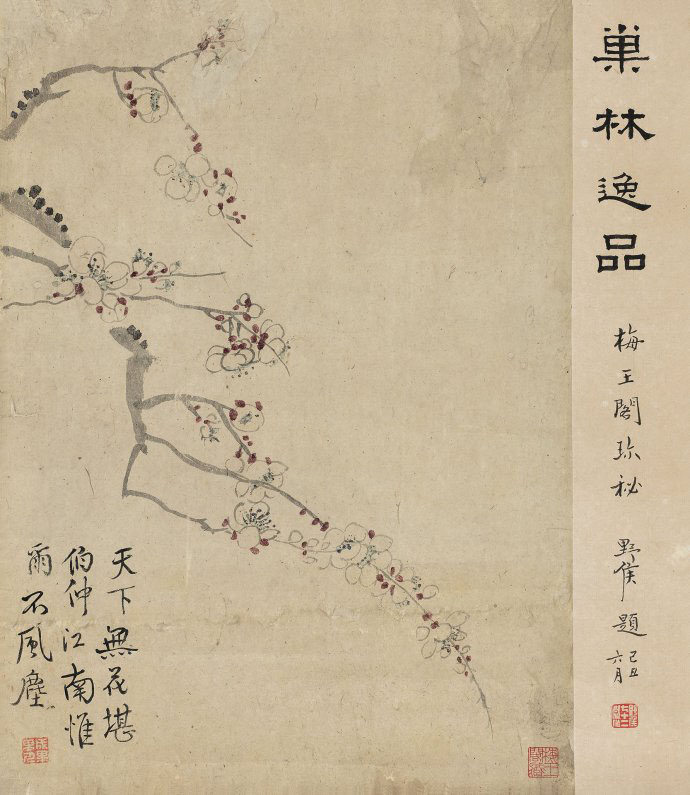 巢林逸品
梅王閣珎秘 野侯題 己丑
六月
天下無花堪
伯仲江南惟
爾不風塵